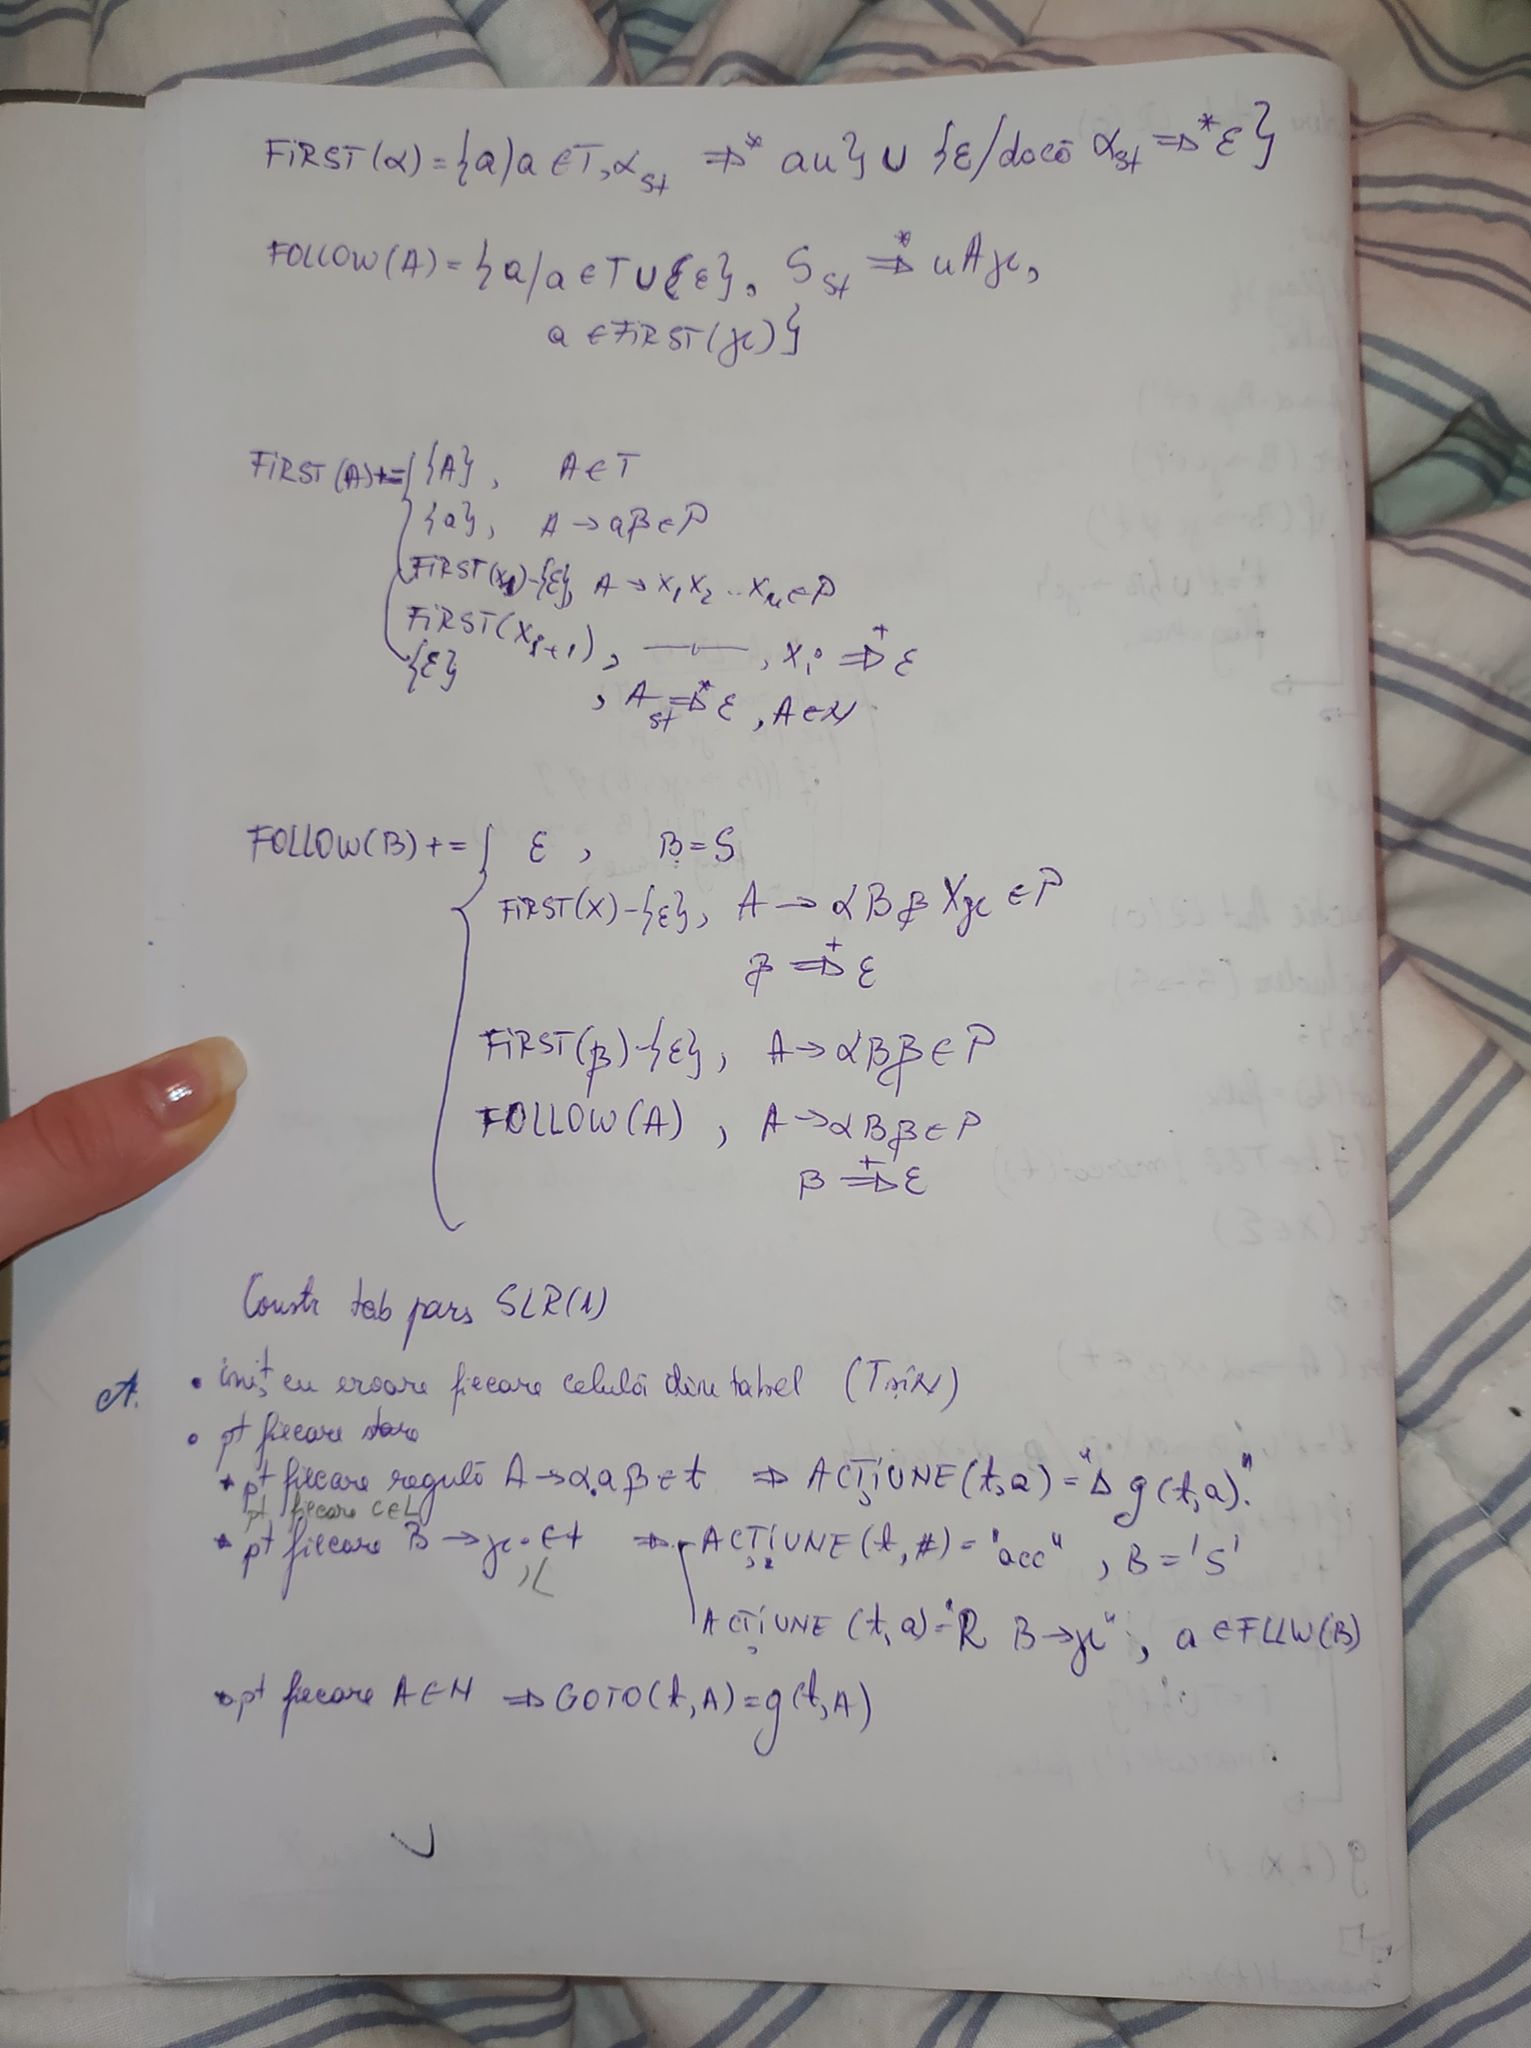 FIRST(α) = {a/a ∈ T, α st ⇒* au} ∪ {ε/dacă α st ⇒* ε}
FOLLOW(A) = {a/a ∈ T ∪ {ε}, S st ⇒* uAγ,
a ∈ FIRST(γ)}
FIRST(A) += { {A}, A ∈ T
{a}, A → aβ ∈ P
FIRST(X1)-{ε}, A → X1 X2 .. Xn ∈ P
FIRST(Xi+1), —"—, Xi ⇒+ ε
{ε}, A st ⇒* ε, A ∈ N
FOLLOW(B) += { ε, B = S
FIRST(X)-{ε}, A → αBβXγ ∈ P
β ⇒+ ε
FIRST(β)-{ε}, A → αBβ ∈ P
FOLLOW(A), A → αBβ ∈ P
β ⇒+ ε
Constr tab pars SLR(1)
A. • iniț cu eroare fiecare celulă din tabel (T și N)
• pt fiecare stare
* pt fiecare regulă A → α.aβ ∈ t ⇒ ACȚIUNE(t,a) = "Δ g(t,a)."
pt fiecare C ∈ L
* pt fiecare B → γ. ∈ t ⇒ ACȚIUNE(t,#) = "acc", B = 'S'
,L
ACȚIUNE (t,a) = "R B → γ", a ∈ FLLW(B)
* pt fiecare A ∈ N ⇒ GOTO(t,A) = g(t,A)